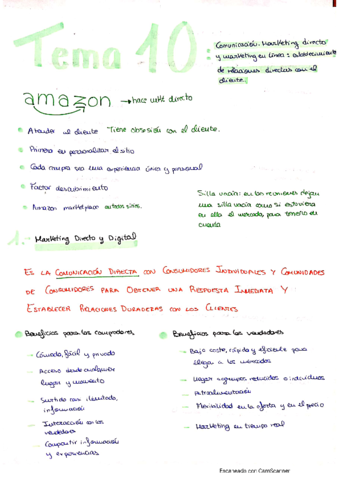 Tema 10:
Comunicación. Marketing directo
y marketing en línea: establecimiento
de relaciones directas con el
cliente.
amazon → hace mkt directo
Atender al cliente Tiene obsesión con el cliente.
Primera en personalizar el sitio
Cada compra sea una experiencia única y personal
Factor descubrimiento
Amazon marketplace
Silla vacía: en las reuniones dejan
una silla vacía como si estuviera
en ella el mercado, para tenerlo en
cuenta
1. Marketing Directo y Digital
ES LA COMUNICACIÓN DIRECTA CON CONSUMIDORES INDIVIDUALES Y COMUNIDADES
DE CONSUMIDORES PARA OBTENER UNA RESPUESTA INMEDIATA Y
ESTABLECER RELACIONES DURADERAS CON LOS CLIENTES
Beneficios para los compradores
Cómoda, fácil y privada
Acceso desde cualquier
lugar y momento
Surtido casi ilimitado,
información
Interacción con los
vendedores
Compartir información
y experiencias
Beneficios para los vendedores
Bajo coste, rápida y eficiente para
llegar a los mercados
Llegar a grupos reducidos o individuos
Retroalimentación
Flexibilidad en la oferta y en el precio
Marketing en tiempo real
Escaneado con CamScanner